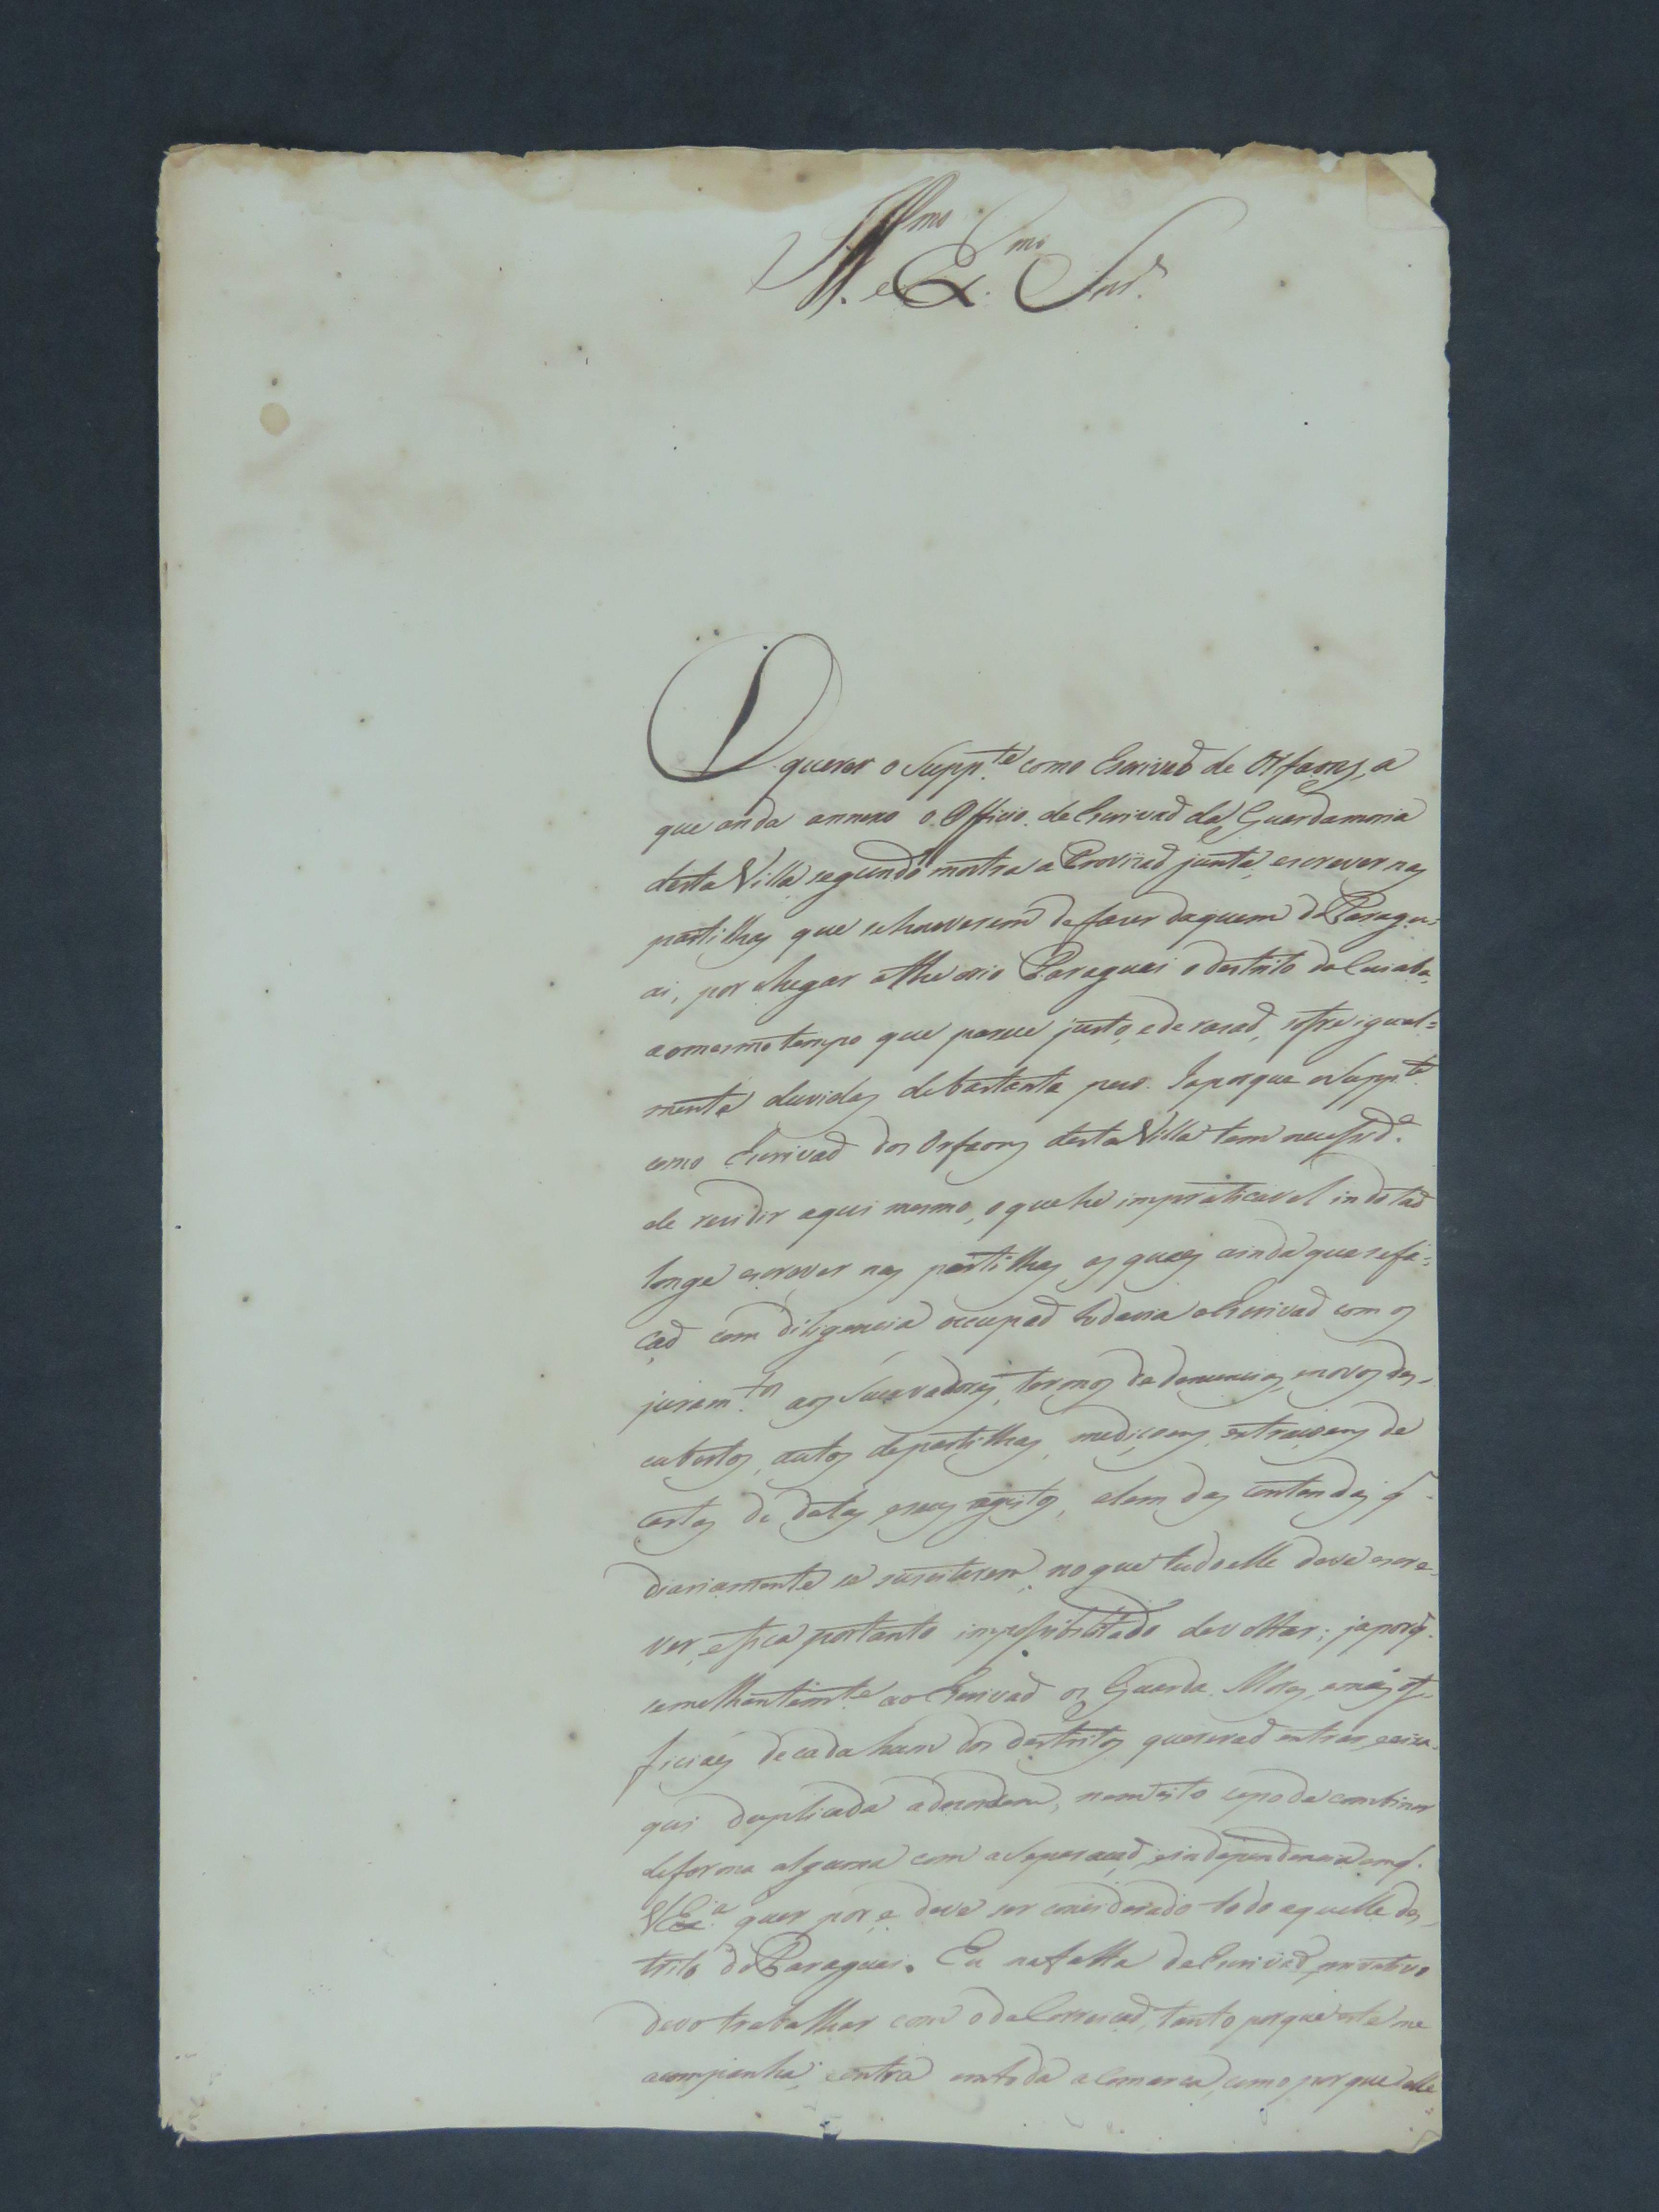 Ill.mo e Ex.mo Snr.
O querer o Supp.te como Escrivaõ de Orfaons, a
que anda annexo o Officio de Escrivaõ da Guardamoria
desta Villa segundo mostra a Provizaõ junta, escrever nas
partilhas que se houverem de fazer daquem do Paragu=
ai, por chegar athe o rio Paraguai o destrito do Cuiabá,
ao mesmo tempo que parece justo, e de razaõ, sofre igual=
mente duvidas de bastante pezo. Ja porque o Supp.te
como Escrivaõ dos Orfaons desta Villa tem necessid.e
de rezidir aqui mesmo, o que he impraticavel indo taõ
longe escrever nas partilhas, as quaes ainda que se fa=
çaõ com diligencia occupaõ todavia o Escrivaõ com os
juram.tos aos Socavadores, termos de denuncias, e novos des-
cubertos, autos de partilhas, mediçoens, extraçoens de
cartas de datas, e seus registos, alem das contendas q
diariamente se suscitarem, no que tudo elle deve escre-
ver, e fica portanto impossibilitado de voltar; ja porq.
semelhantem.te ao Escrivaõ os Guarda Mores, e mais of-
ficiaes de cada hum dos destritos quereraõ entrar, e eis a-
qui duplicada a dezordem, nem isto se pode combinar
de forma alguma com a separaçaõ, e independencia em q.
V Ex.a quer por, e deve ser considerado todo aquelle des-
trito do Paraguai. Eu na falta de Escrivaõ privativo
devo trabalhar com o da Correiçaõ, tanto porque este me
acompanha, e entra em toda a Comarca, como porque elle